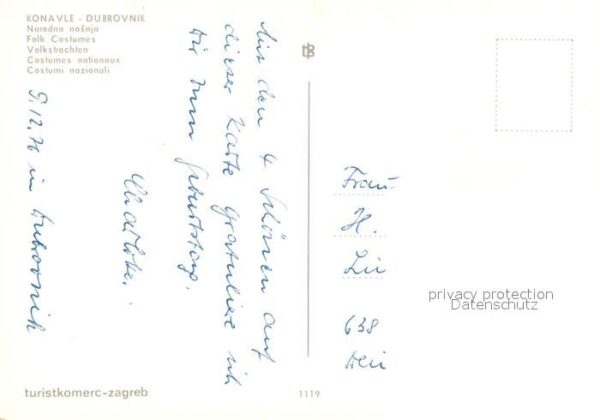 KONAVLE - DUBROVNIK
Narodna nošnja
Folk Costumes
Volkstrachten
Costumes nationaux
Costumi nazionali
9.12.76 in Dubrovnik
Mit den 4 Schönen auf
dieser Karte gratuliere ich
Dir zum Geburtstag.
Charlotte.
Frau
H.
Lin
638
privacy protection
Datenschutz
turistkomerc-zagreb
1119